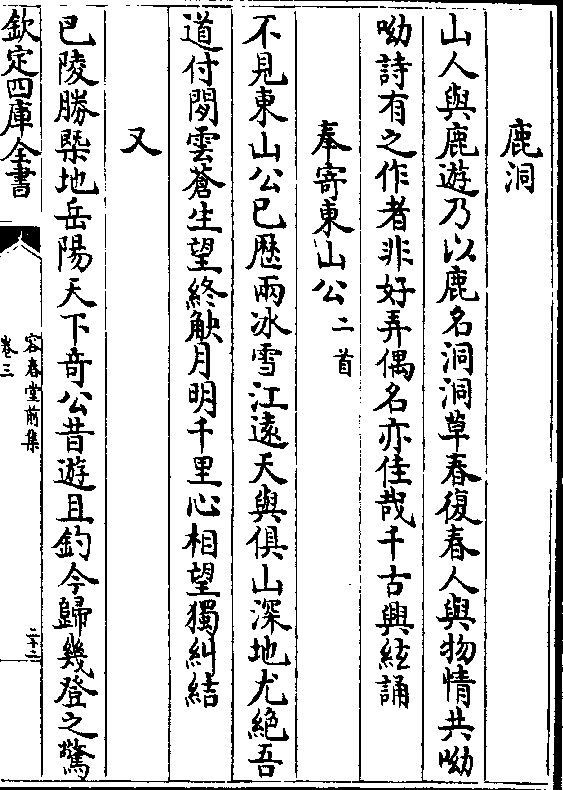 鹿洞
山人與鹿遊乃以鹿名洞洞草春復春人與物情共呦
呦詩有之作者非好弄偶名亦佳哉千古興絃誦
奉寄東山公二首
不見東山公已歴兩冰雪江遠天與俱山深地尤絶吾
道付閒雲蒼生望終觖月明千里心相望獨糾結
又
巴陵勝槩地岳陽天下竒公昔遊且釣今歸幾登之驚
欽定四庫全書
容春堂前集
卷三
二十二